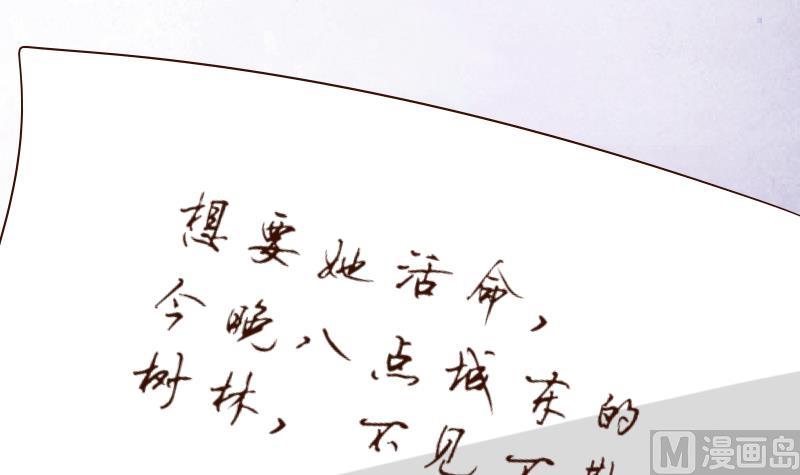 想要她活命，
今晚八点城东的
树林，不见不
M 漫画岛